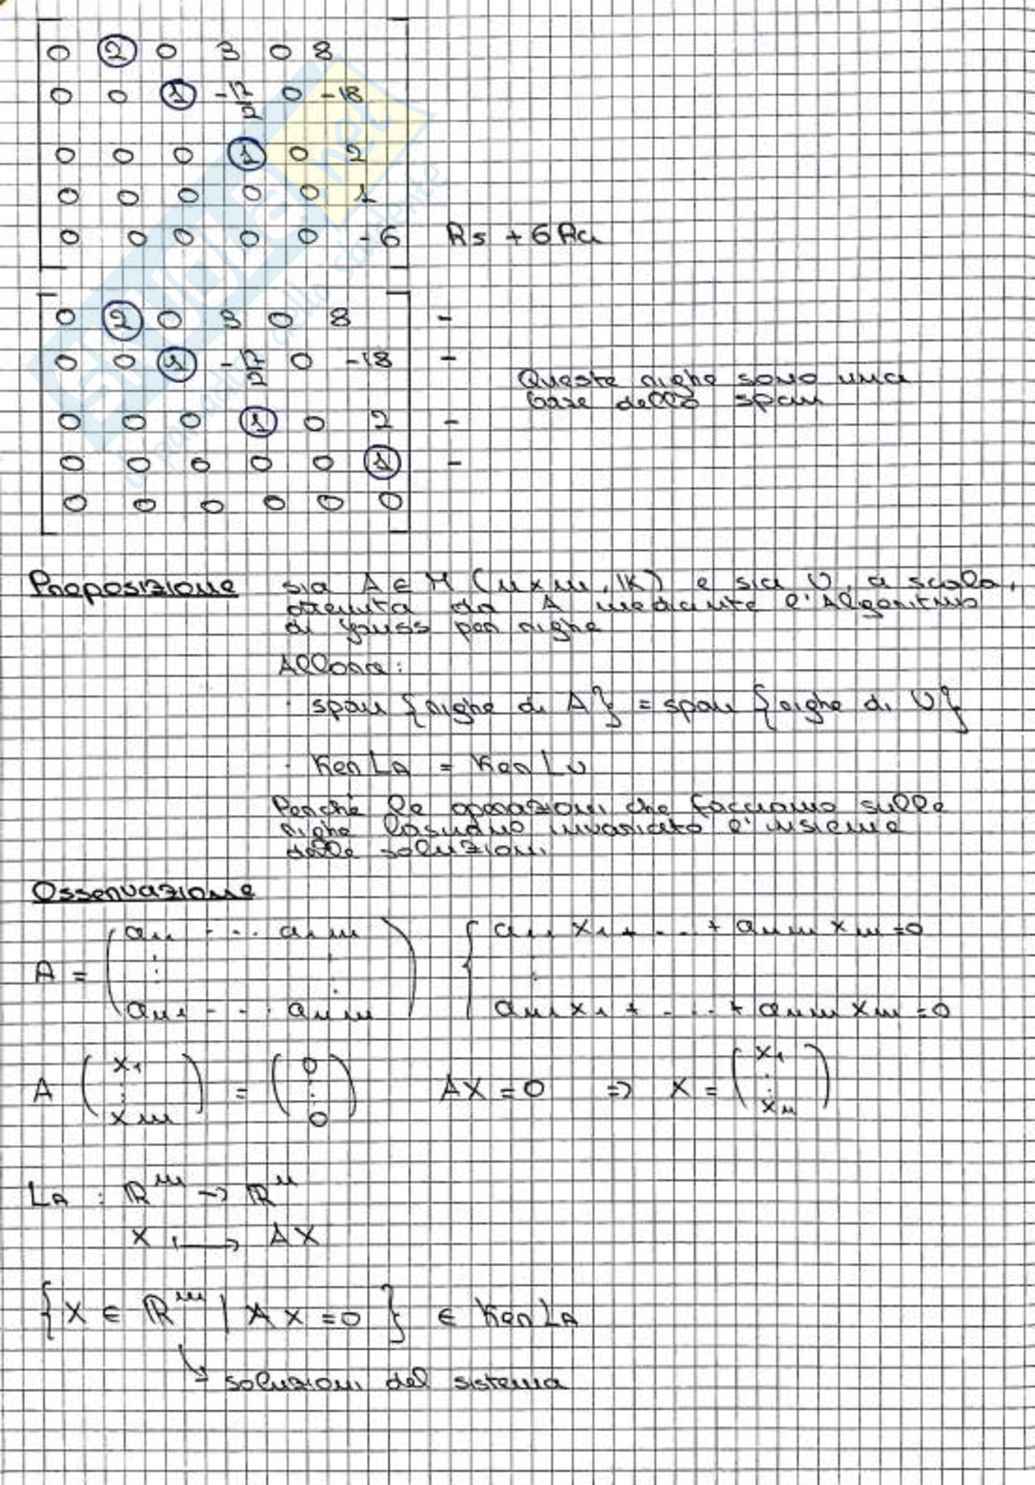 0 2 0 3 0 8
0 0 1 -17/2 0 -18
0 0 0 1 0 2
0 0 0 0 0 1
0 0 0 0 0 -6 R5 + 6R4
0 2 0 3 0 8 -
0 0 1 -17/2 0 -18 -
Queste righe sono una
base dello span
0 0 0 1 0 2 -
0 0 0 0 0 1 -
0 0 0 0 0 0
Proposizione sia A ∈ M (n×m, K) e sia U, a scala,
ottenuta da A mediante l'Algoritmo
di Gauss per righe
Allora:
· span {righe di A} = span {righe di U}
· Ker LA = Ker LU
Perché le operazioni che facciamo sulle
righe lasciano invariato l'insieme
delle soluzioni.
Osservazione
A = ( a11 ... a1m ) { a11 x1 + ... + a1m xm = 0
⋮ ⋮ ⋮
an1 ... anm an1 x1 + ... + anm xm = 0
A (x1 ⋮ xm) = (0 ⋮ 0) AX = 0 ⇒ X = (x1 ⋮ xn)
LA : ℝm → ℝn
X ↦ AX
{X ∈ ℝm | AX = 0} ∈ Ker LA
↘ soluzioni del sistema